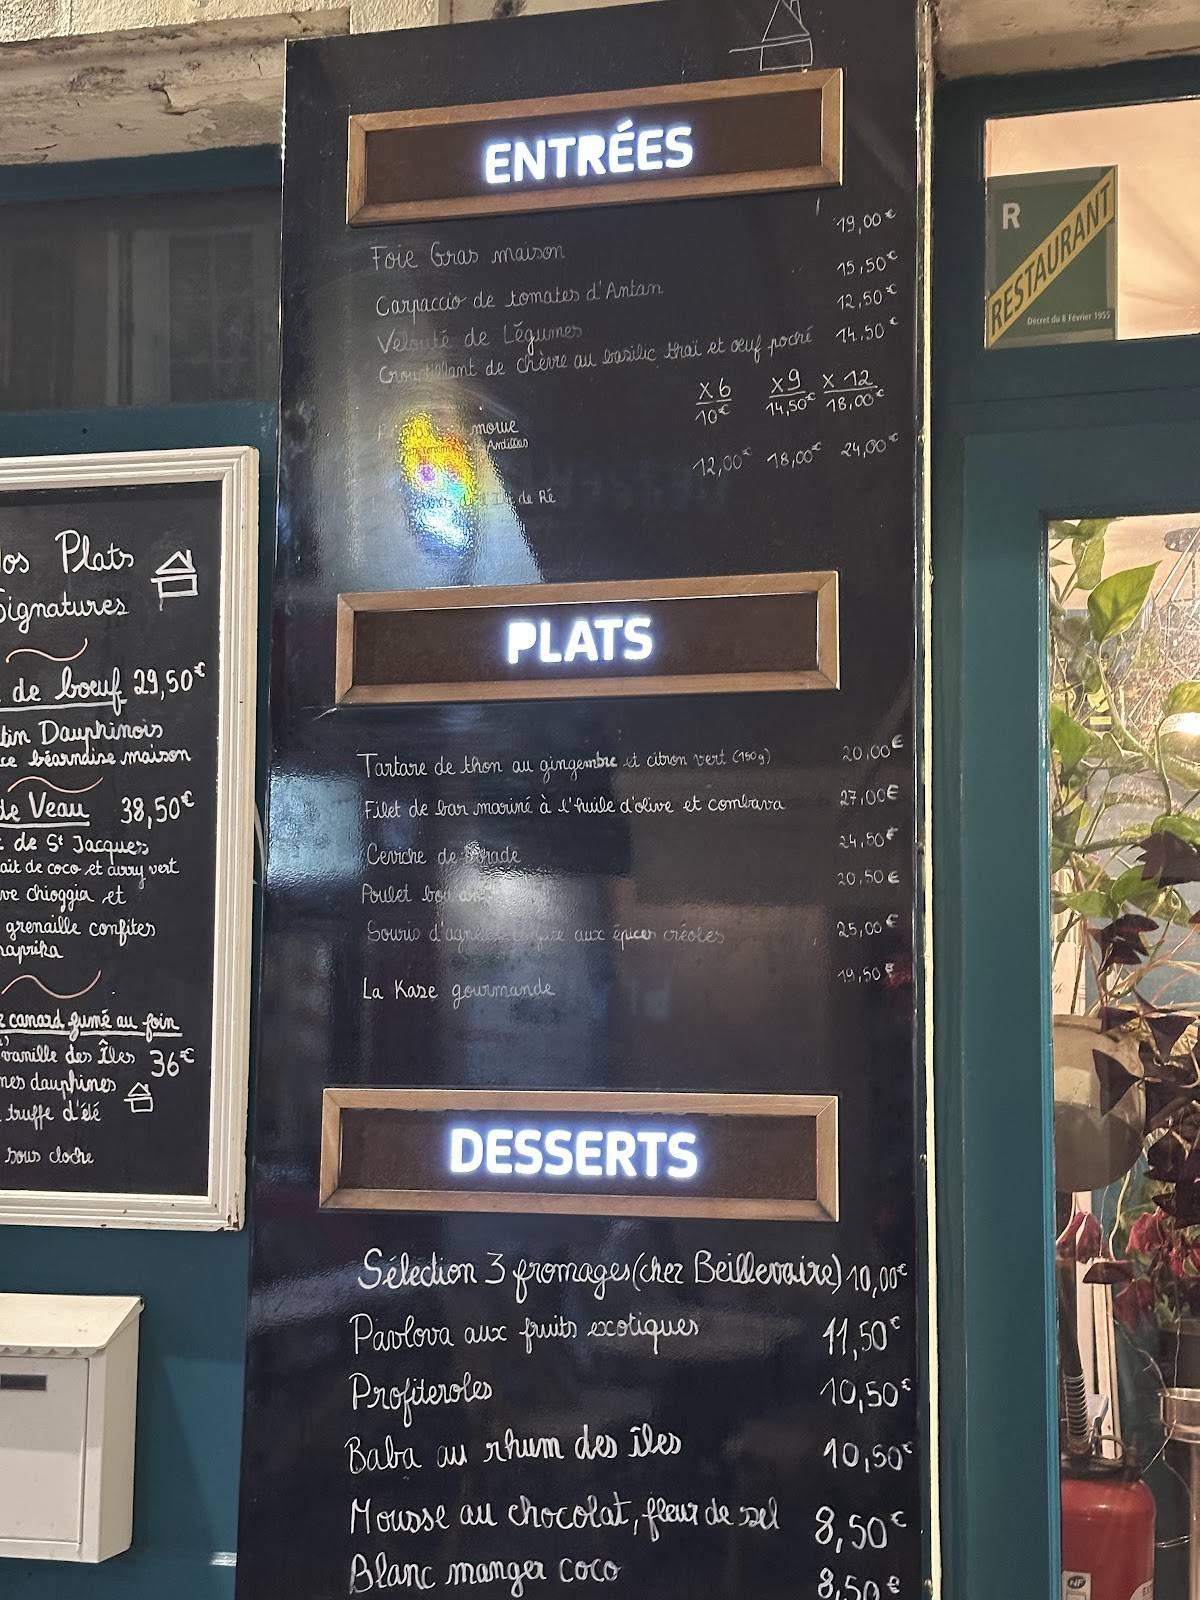 ENTRÉES
Foie Gras maison 19,00€
Carpaccio de tomates d'Antan 15,50€
Velouté de Légumes 12,50€
Croustillant de chèvre au basilic thaï et œuf poché 14,50€
x6 x9 x12
10€ 14,50€ 18,00€
morue
Antillais
12,00€ 18,00€ 24,00€
de Ré
PLATS
Tartare de thon au gingembre et citron vert (150g) 20,00€
Filet de bar mariné à l'huile d'olive et combava 27,00€
Ceviche de 24,50€
Poulet 20,50€
Souris d'agneau confite aux épices créoles 25,00€
La Kaze gourmande 19,50€
DESSERTS
Sélection 3 fromages (chez Beillevaire) 10,00€
Pavlova aux fruits exotiques 11,50€
Profiteroles 10,50€
Baba au rhum des îles 10,50€
Mousse au chocolat, fleur de sel 8,50€
Blanc manger coco 8,50€
os Plats
Signatures
de bœuf 29,50€
tin Dauphinois
ce béarnaise maison
de Veau 38,50€
de St Jacques
ait de coco et curry vert
ve chioggia et
grenaille confites
paprika
canard fumé au foin
vanille des Îles 36€
mes dauphines
truffe d'été
sous cloche
R
RESTAURANT
Décret du 8 Février 1955
NF